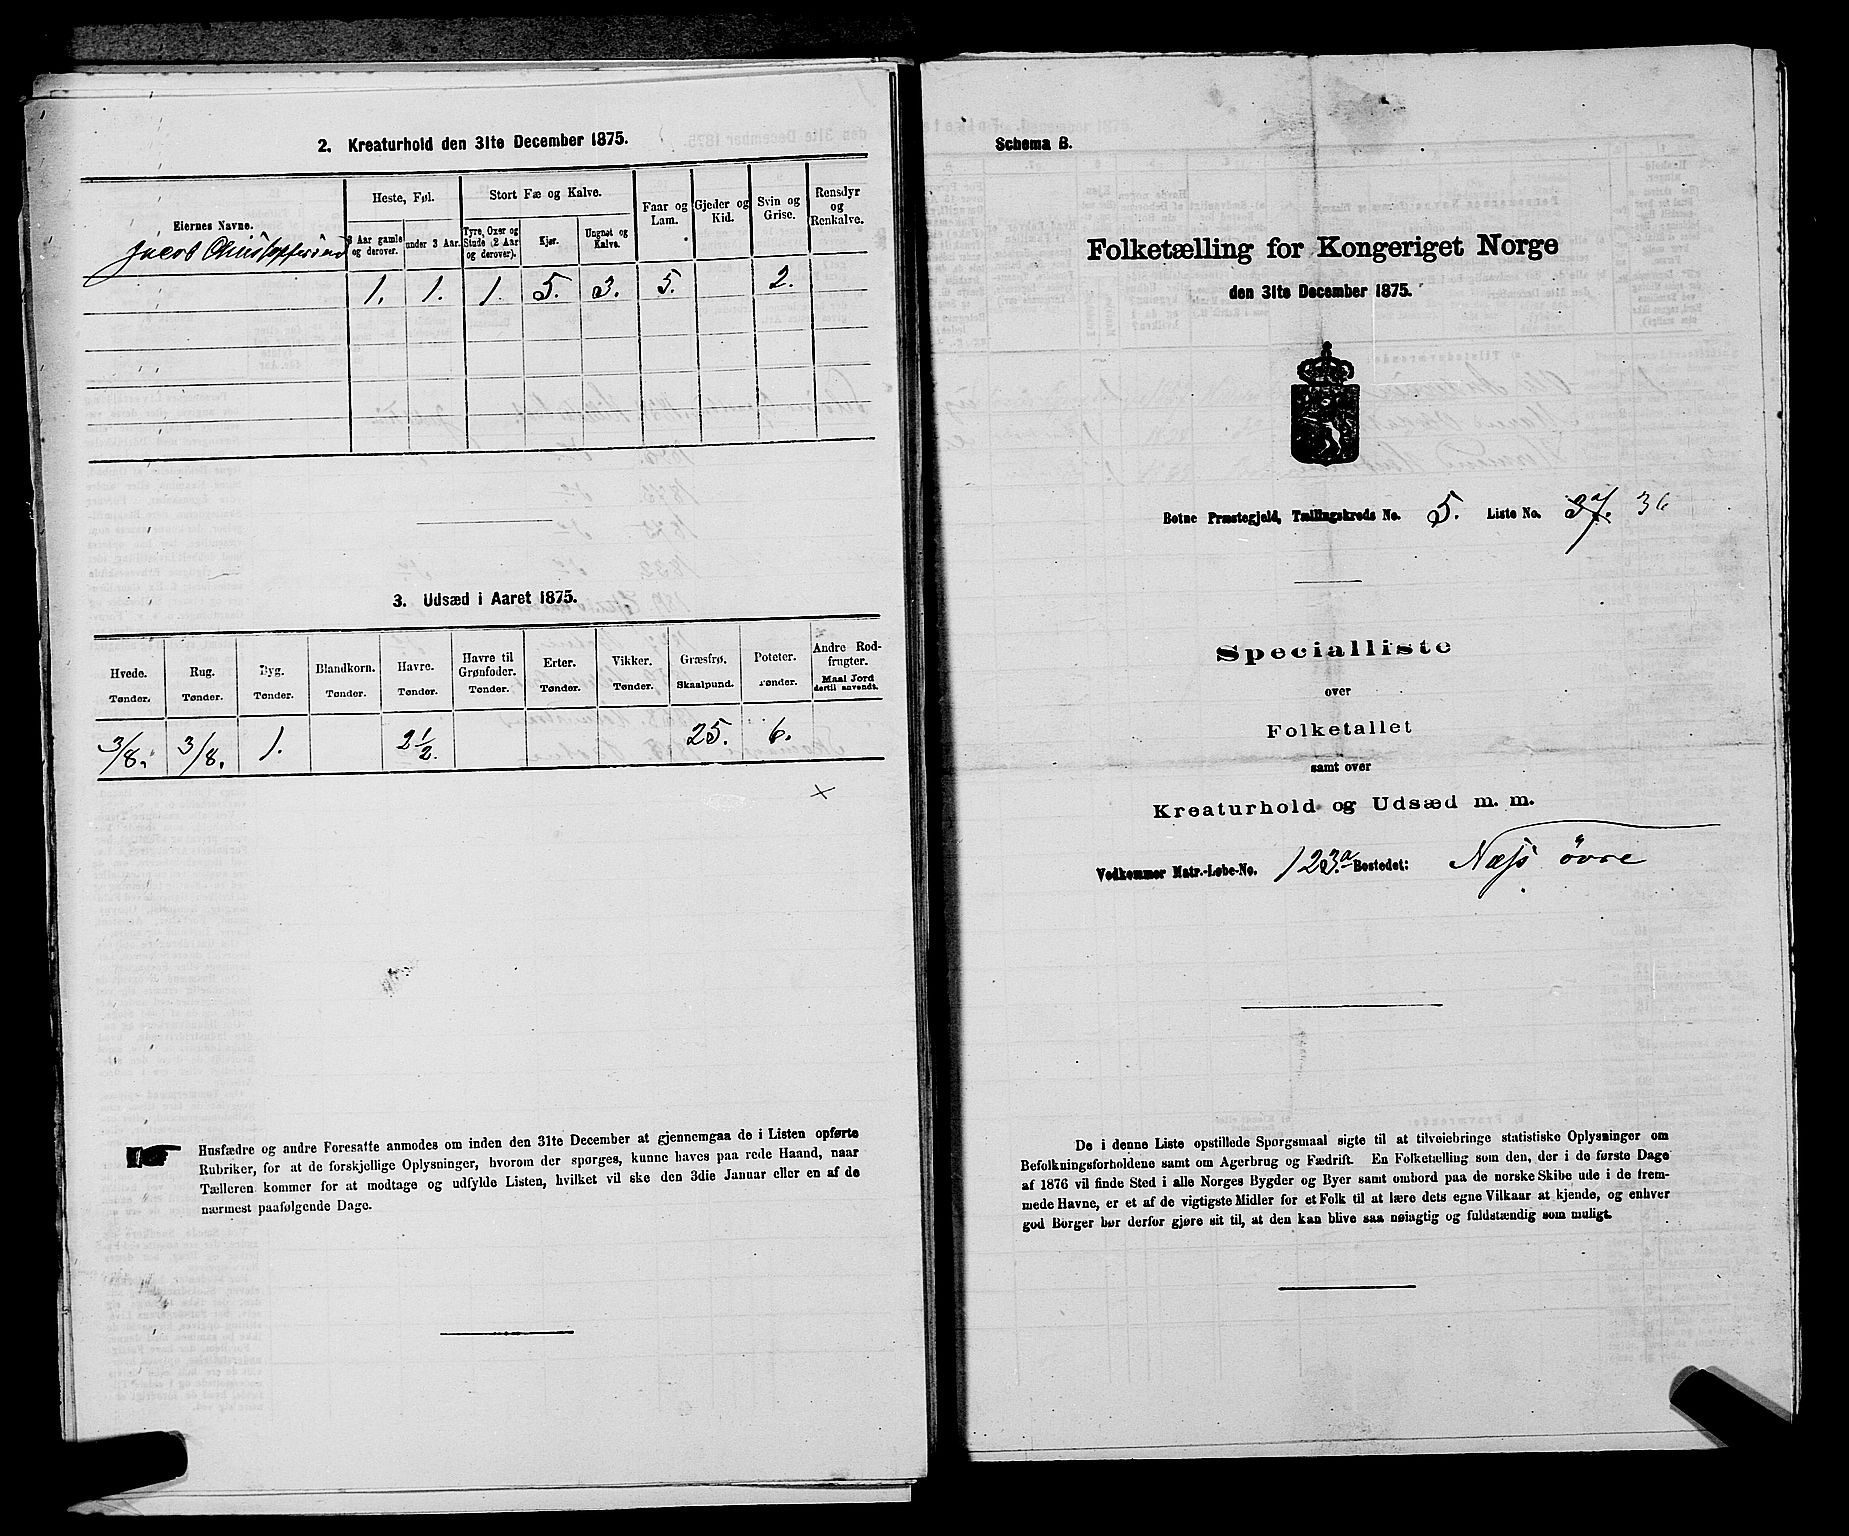 2. Kreaturhold den 31te December 1875.
Eiernes Navne.
Heste, Føl.
Stort Fæ og Kalve.
Faar og Lam.
Gjeder og Kid.
Svin og Grise.
Rensdyr og Renkalve.
3 Aar gamle og derover.
under 3 Aar.
Tyre, Oxer og Stude (2 Aar og derover).
Kjør.
Ungnøt og Kalve.
Jacob Christoffersen
1. 1. 1. 5. 3. 5. 2.
3. Udsæd i Aaret 1875.
Hvede. Rug. Byg. Blandkorn. Havre. Havre til Grønfoder. Erter. Vikker. Græsfrø. Poteter. Andre Rodfrugter.
Tønder. Tønder. Tønder. Tønder. Tønder. Tønder. Tønder. Tønder. Skaalpund. Tønder. Maal Jord dertil anvendt.
3/8. 3/8. 1. 2 1/2. 25. 6.
×
Husfædre og andre Foresatte anmodes om inden den 31te December at gjennemgaa de i Listen opførte
Rubriker, for at de forskjellige Oplysninger, hvorom der spørges, kunne haves paa rede Haand, naar
Tælleren kommer for at modtage og udfylde Listen, hvilket vil ske den 3die Januar eller en af de
nærmest paafølgende Dage.
Schema B.
Folketælling for Kongeriget Norge
den 31te December 1875.
Botne Præstegjeld, Tællingskreds No. 5. Liste No. 37. 36
Specialliste
over
Folketallet
samt over
Kreaturhold og Udsæd m. m.
Vedkommer Matr.-Løbe-No. 123.a Bostedet: Næss øvre
De i denne Liste opstillede Spørgsmaal sigte til at tilveiebringe statistiske Oplysninger om
Befolkningsforholdene samt om Agerbrug og Fædrift. En Folketælling som den, der i de første Dage
af 1876 vil finde Sted i alle Norges Bygder og Byer samt ombord paa de norske Skibe ude i de frem-
mede Havne, er et af de vigtigste Midler for et Folk til at lære dets egne Vilkaar at kjende, og enhver
god Borger bør derfor gjøre sit til, at den kan blive saa nøiagtig og fuldstændig som muligt.